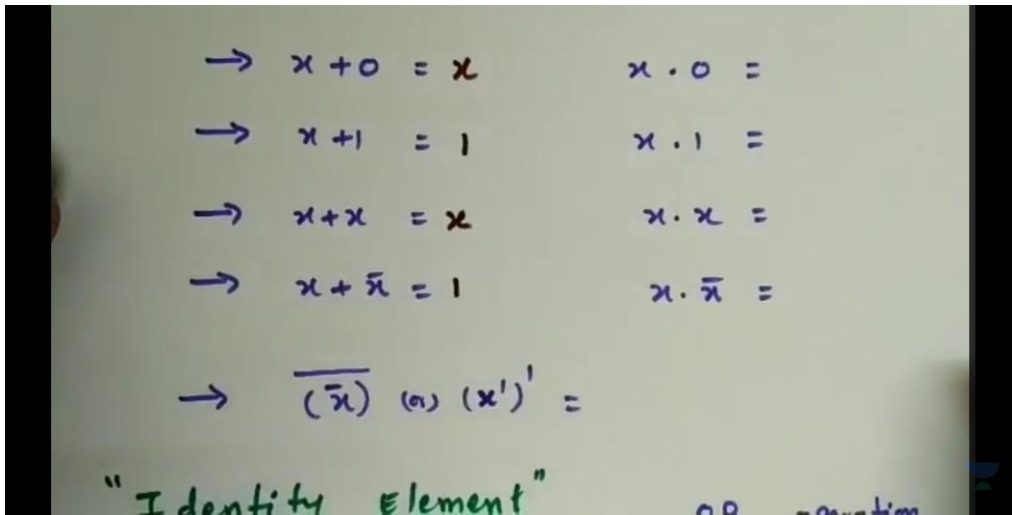 → x + 0 = x x . 0 =
→ x + 1 = 1 x . 1 =
→ x + x = x x . x =
→ x + x̄ = 1 x . x̄ =
→ (x̄)̅ (or) (x')' =
"Identity Element" OR operation